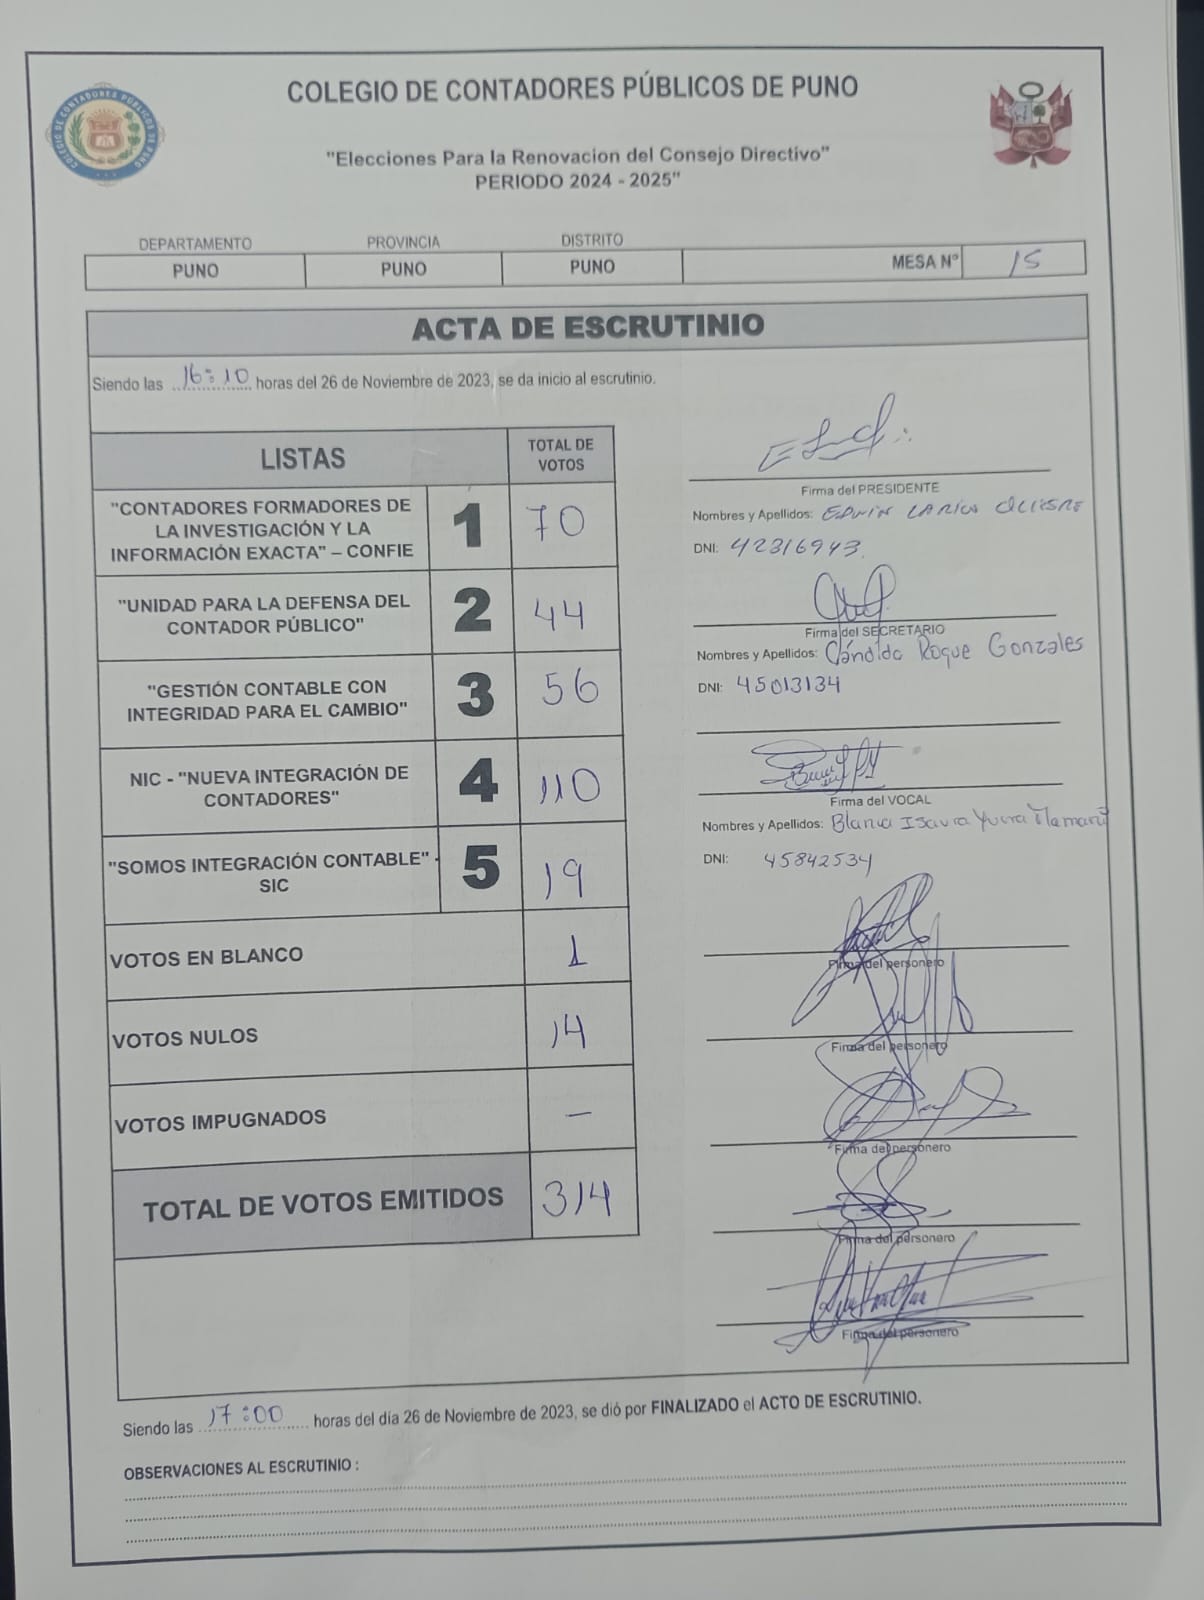 COLEGIO DE CONTADORES PÚBLICOS DE PUNO
COLEGIO DE CONTADORES PUBLICOS DE PUNO
"Elecciones Para la Renovacion del Consejo Directivo"
PERIODO 2024 - 2025"
DEPARTAMENTO PROVINCIA DISTRITO
PUNO PUNO PUNO MESA N° 15
ACTA DE ESCRUTINIO
Siendo las 16:10 horas del 26 de Noviembre de 2023, se da inicio al escrutinio.
LISTAS TOTAL DE VOTOS
"CONTADORES FORMADORES DE
LA INVESTIGACIÓN Y LA
INFORMACIÓN EXACTA" – CONFIE 1 70
"UNIDAD PARA LA DEFENSA DEL
CONTADOR PÚBLICO" 2 44
"GESTIÓN CONTABLE CON
INTEGRIDAD PARA EL CAMBIO" 3 56
NIC - "NUEVA INTEGRACIÓN DE
CONTADORES" 4 110
"SOMOS INTEGRACIÓN CONTABLE" -
SIC 5 19
VOTOS EN BLANCO 1
VOTOS NULOS 14
VOTOS IMPUGNADOS —
TOTAL DE VOTOS EMITIDOS 314
Firma del PRESIDENTE
Nombres y Apellidos: EDWIN LARICO
DNI: 42316943
Firma del SECRETARIO
Nombres y Apellidos: Cándida Roque Gonzales
DNI: 45013134
Firma del VOCAL
Nombres y Apellidos: Isaura Mamani
DNI: 45842534
Firma del personero
Firma del personero
Firma del personero
Firma del personero
Firma del personero
Siendo las 17:00 horas del día 26 de Noviembre de 2023, se dió por FINALIZADO el ACTO DE ESCRUTINIO.
OBSERVACIONES AL ESCRUTINIO :